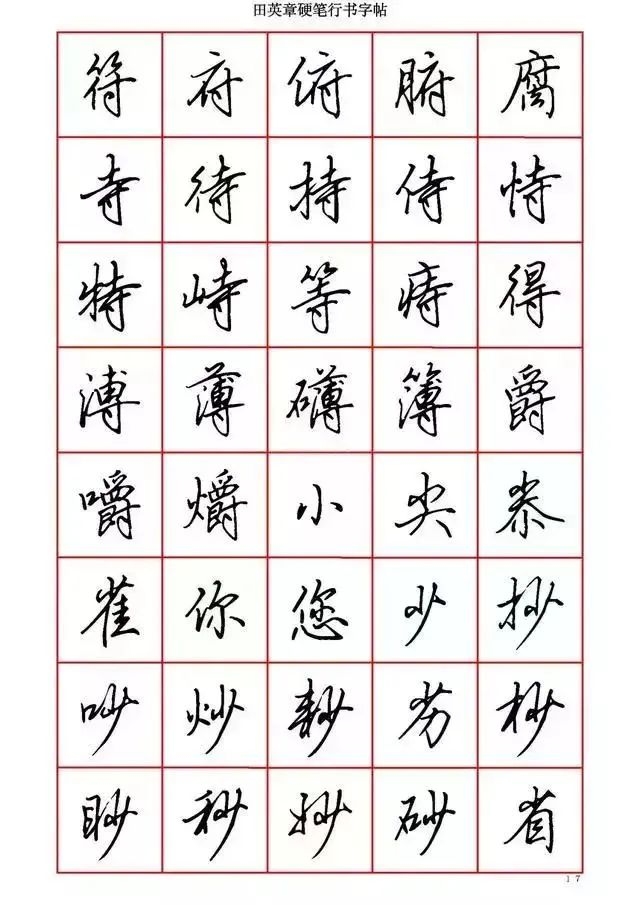 田英章硬笔行书字帖
符府俯腑腐
寺待持侍恃
特峙等痔得
溥薄礴簿爵
嚼爝小尖尜
雀你您少抄
吵炒耖劣杪
眇秒妙砂省
17